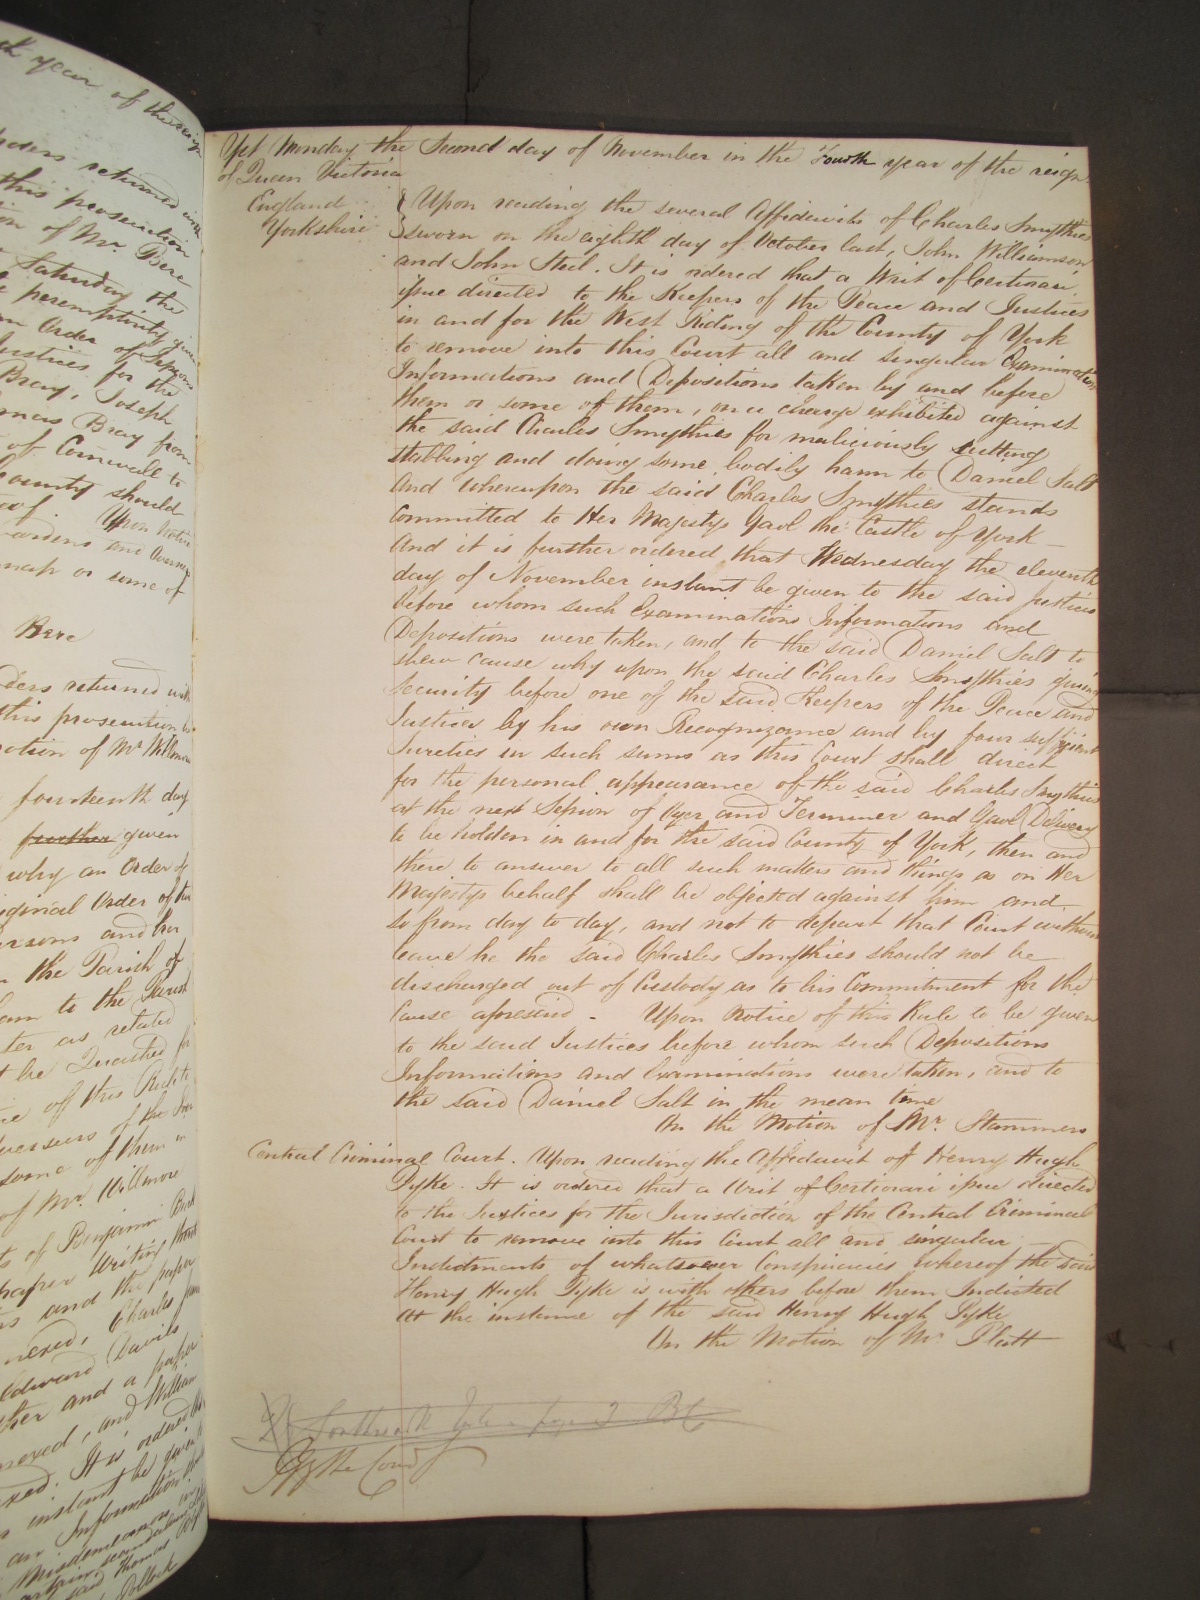 th year of the reign
orders returned with
this prosecution
ion of Mr. Bere
Saturday the
peremptorily given
an Order of Sessions
Justices for the
Bray, Joseph
omas Bray from
of Cornwall to
County should
of. Upon Notice
wardens and Overseers
or some of
Bere
ders returned with
this prosecution be
otion of Mr Willmore
fourteenth day
further given
why an Order of
iginal Order of two
ersons and her
the Parish of
am to the Parish
ter as retated
be Quashed for
of this Rule to
verseers of the
some of them in
of Mr. Willmore
ts of Benjamin
paper Writing
s and the paper
nexed, Charles
Edward Davils
ther and a paper
nexed, and William
xed. It is ordered
instant be given
an Information
Misdemeanors
said Thomas
Pollock
Yet Monday the Second day of November in the Fourth year of the reign
of Queen Victoria
England
Yorkshire
Upon reading the several Affidavits of Charles Smythies
sworn on the eighth day of October last, John Williamson
and John Steil. It is ordered that a Writ of Certiorari
issue directed to the Keepers of the Peace and Justices
in and for the West Riding of the County of York
to remove into this Court all and singular Examinations
Informations and Depositions taken by and before
them or some of them, on a charge exhibited against
the said Charles Smythies for maliciously cutting
stabbing and doing some bodily harm to Daniel Salt
And whereupon the said Charles Smythies stands
Committed to Her Majestys Gaol the Castle of York
And it is further ordered that Wednesday the eleventh
day of November instant be given to the said Justices
before whom such Examinations Informations and
Depositions were taken, and to the said Daniel Salt to
shew cause why upon the said Charles Smythies giving
Security before one of the said Keepers of the Peace and
Justices by his own Recognizance and by four sufficient
Sureties in such sums as this Court shall direct
for the personal appearance of the said Charles Smythies
at the next Session of Oyer and Terminer and Gaol Delivery
to be holden in and for the said County of York, then and
there to answer to all such matters and things as on Her
Majestys behalf shall be objected against him and
so from day to day, and not to depart that Court without
leave he the said Charles Smythies should not be
discharged out of Custody as to his Commitment for the
Cause aforesaid - Upon Notice of this Rule to be given
to the said Justices before whom such Depositions
Informations and Examinations were taken, and to
the said Daniel Salt in the mean time
On the Motion of Mr. Stammers
Central Criminal Court. Upon reading the Affidavit of Henry Hugh
Pyke. It is ordered that a Writ of Certiorari issue directed
to the Justices for the Jurisdiction of the Central Criminal
Court to remove into this Court all and singular
Indictments of whatsoever Conspiracies whereof the said
Henry Hugh Pyke is with others before them Indicted
At the instance of the said Henry Hugh Pyke
On the Motion of Mr Platt
By the Court